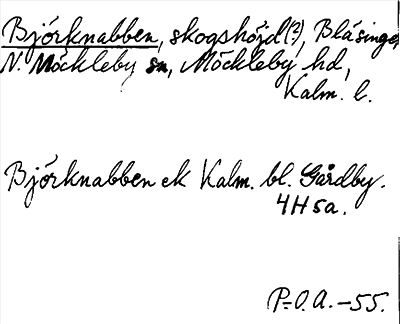 Björknabben, skogshöjd(?), Blåsinge,
N. Möckleby sn, Möckleby hd,
Kalm. l.
Björknabben ek Kalm. bl. Gårdby.
4H5a.
P-O.A. -55.